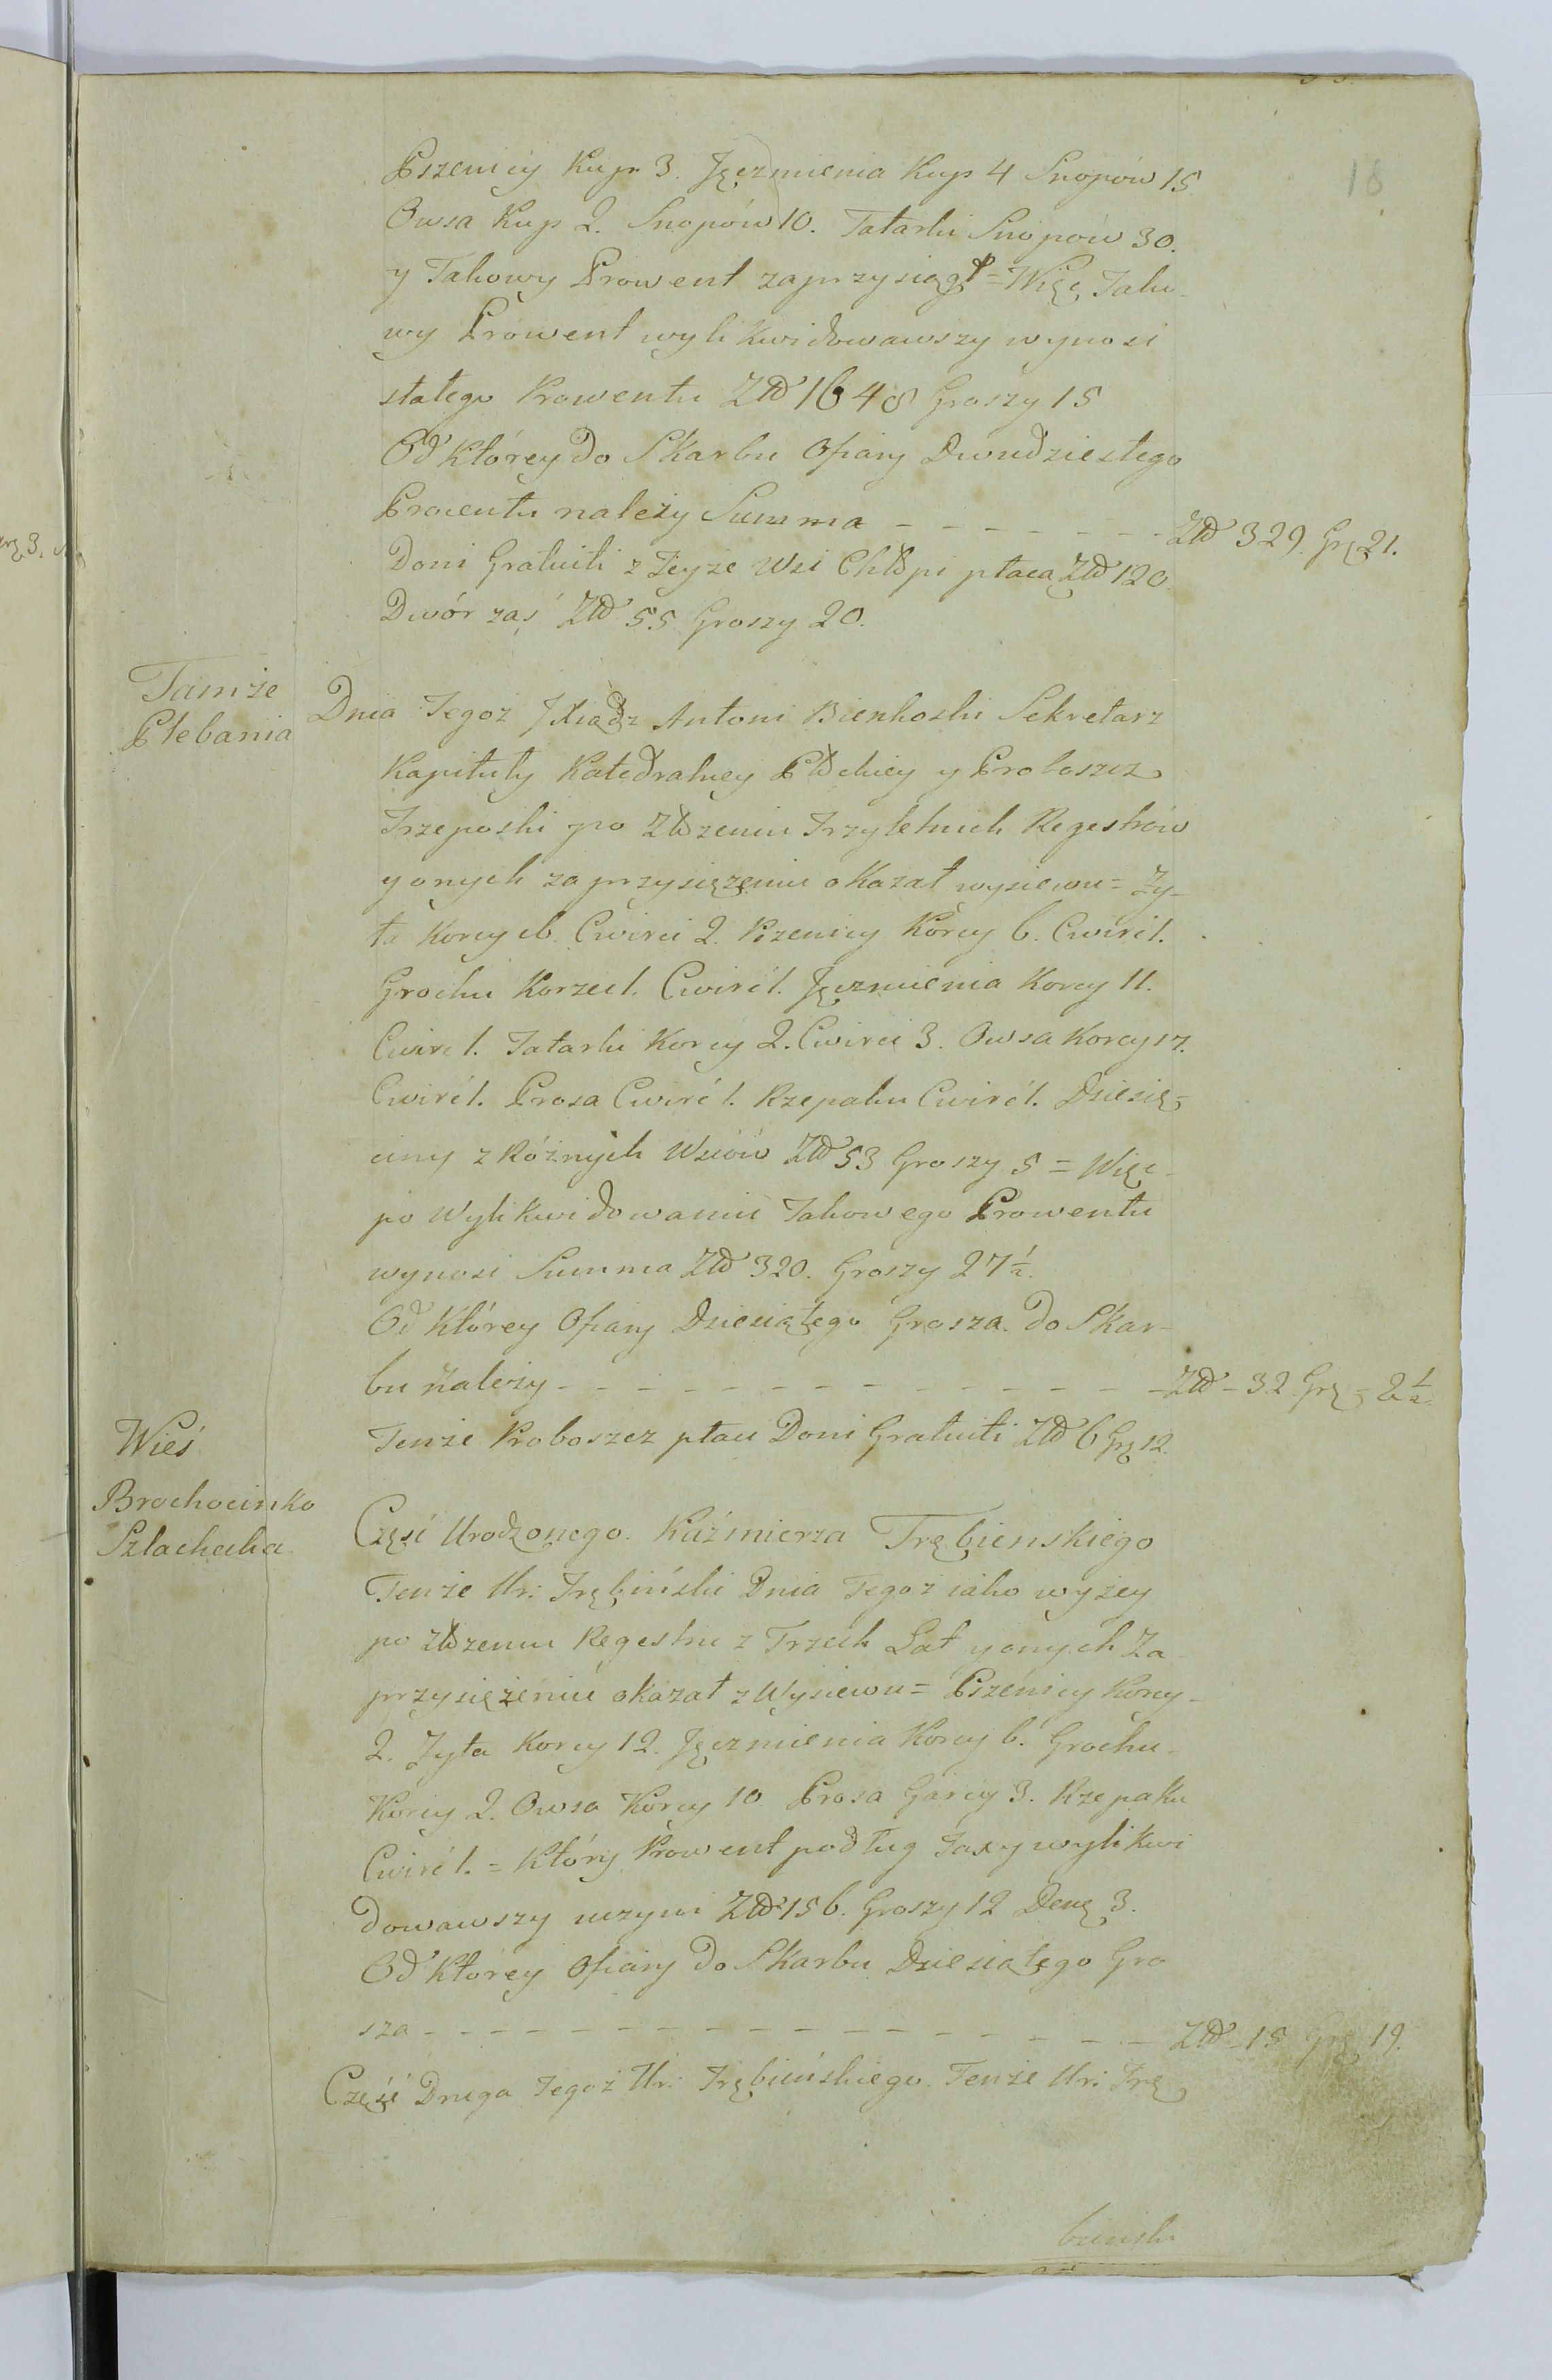 18
Pszenicy Kup 3. Jęczmienia Kup 4 Snopów 15.
Owsa Kup 2. Snopów 10. Tatarki Snopów 30.
y Takowy Prowent zaprzysiągł = Więc Tako-
wy Prowent wylikwidowawszy wynosi
stałego Prowentu Złł 1648 Groszy 15
Od którey do Skarbu Ofiary Dwudziestego
Procentu należy Summa - - - - - - - Złł 329. Grę 21.
Doni Gratuiti z Teyże Wsi Chłopi płacą Złł 120.
Dwór zaś Złł 55 Groszy 20.
Tamże
Plebania
Dnia Tegoż JXiądz Antoni Bienkoski Sekretarz
Kapituły Katedralney Płłckiey y Proboszcz
Trzeposki po Złożeniu Trzyletnich Regestrów
y onych zaprzysiężeniu okazał wysiewu = Ży-
ta Korcy 16. Cwierci 2. Pszenicy Korcy 6. Cwirć 1.
Grochu Korzec 1. Cwirć 1. Jęczmienia Korcy 11.
Cwirć 1. Tatarki Korcy 2. Cwirci 3. Owsa Korcy 17.
Cwirć 1. Prosa Cwirć 1. Rzepaku Cwirć 1. Dziesię-
ciny z Różnych Wsiów Złł 53 Groszy 5 = Więc
po Wylikwidowaniu Takowego Prowentu
wynosi Summa Złł 320. Groszy 27 1/2.
Od Którey Ofiary Dziesiątego Grosza do Skar-
bu Należy - - - - - - - - - - - - - - Złł - 32 Grę - 2 1/2.
Tenże Proboszcz płaci Doni Gratuiti Złł 6 Grę 12.
Wieś
Brochocinko
Szlachecka
Część Urodzonego Kaźmierza Trębienskiego
Tenże Ur: Trębiński Dnia Tegoż iako wyżey
po złożeniu Regestru z Trzech Lat y onych Za-
przysiężeniu okazał z Wysiewu = Pszenicy Korcy
2. Żyta Korcy 12. Jęczmienia Korcy 6. Grochu
Korcy 2. Owsa Korcy 10 Prosa Garcy 3. Rzepaku
Cwirć 1. = Który Prowent podług Taxy wylikwi
dowawszy uczyni Złł 156. Groszy 12 Denę 3.
Od Którey Ofiary do Skarbu Dziesiątego Gro
sza - - - - - - - - - - - - - - - - - Złł - 15 Grę 19.
Część Druga Tegoż Ur: Trębińskiego. Tenże Ur: Trę
binski